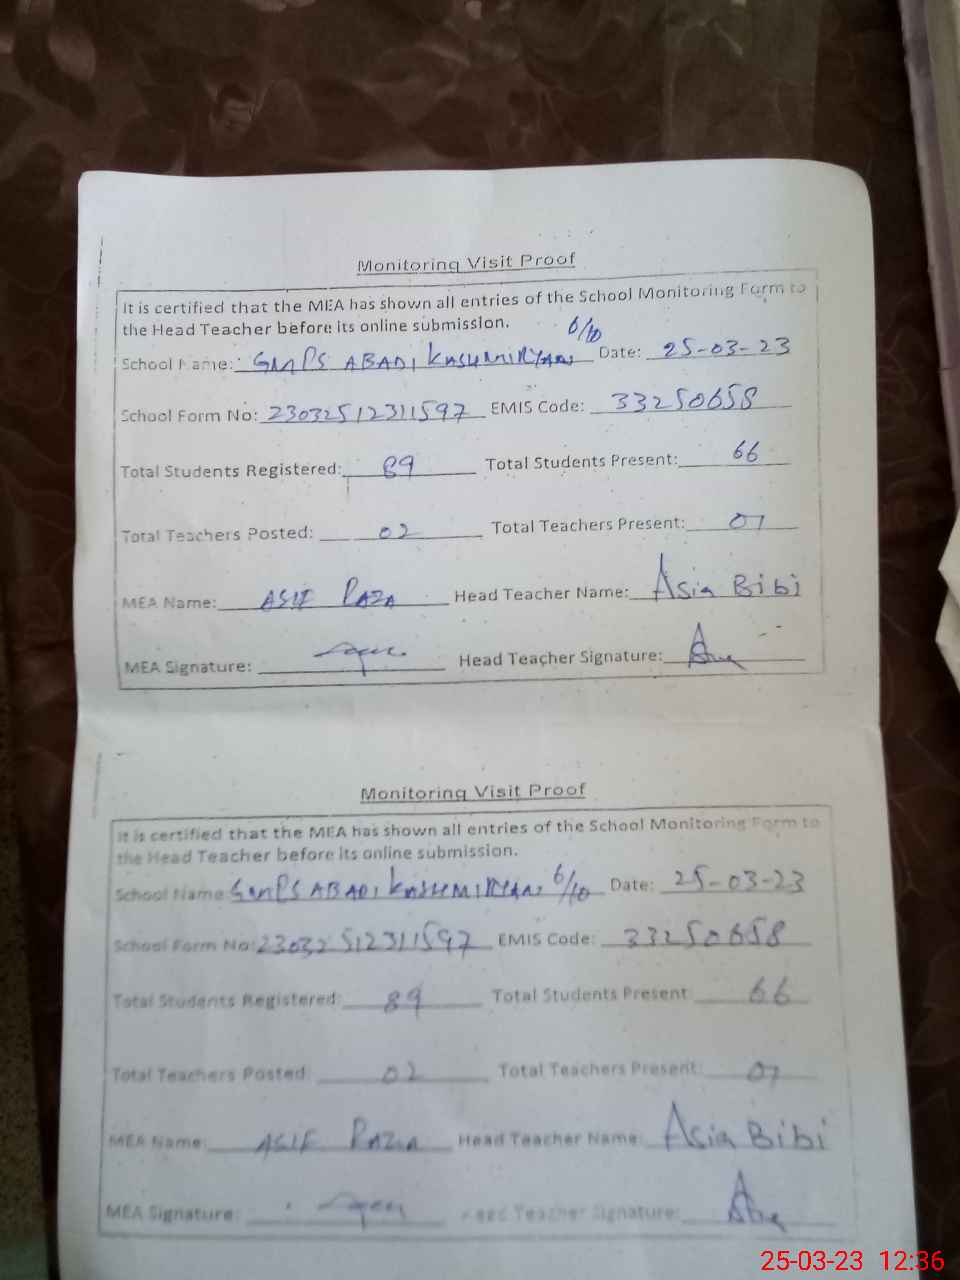 Monitoring Visit Proof
It is certified that the MEA has shown all entries of the School Monitoring Form to
the Head Teacher before its online submission.
School Name: GMPS ABADI KASHMIRYAN 6/10 Date: 25-03-23
School Form No: 23032512311597 EMIS Code: 33250658
Total Students Registered: 89 Total Students Present: 66
Total Teachers Posted: 02 Total Teachers Present: 01
MEA Name: ASIF RAZA Head Teacher Name: Asia Bibi
MEA Signature: Head Teacher Signature:
Monitoring Visit Proof
It is certified that the MEA has shown all entries of the School Monitoring Form to
the Head Teacher before its online submission.
School Name GMPS ABADI KASHMIRYAN 6/10 Date: 25-03-23
School Form No: 23032512311597 EMIS Code: 33250658
Total Students Registered: 89 Total Students Present: 66
Total Teachers Posted: 02 Total Teachers Present: 01
MEA Name: ASIF RAZA Head Teacher Name: Asia Bibi
MEA Signature: Head Teacher Signature:
25-03-23 12:36